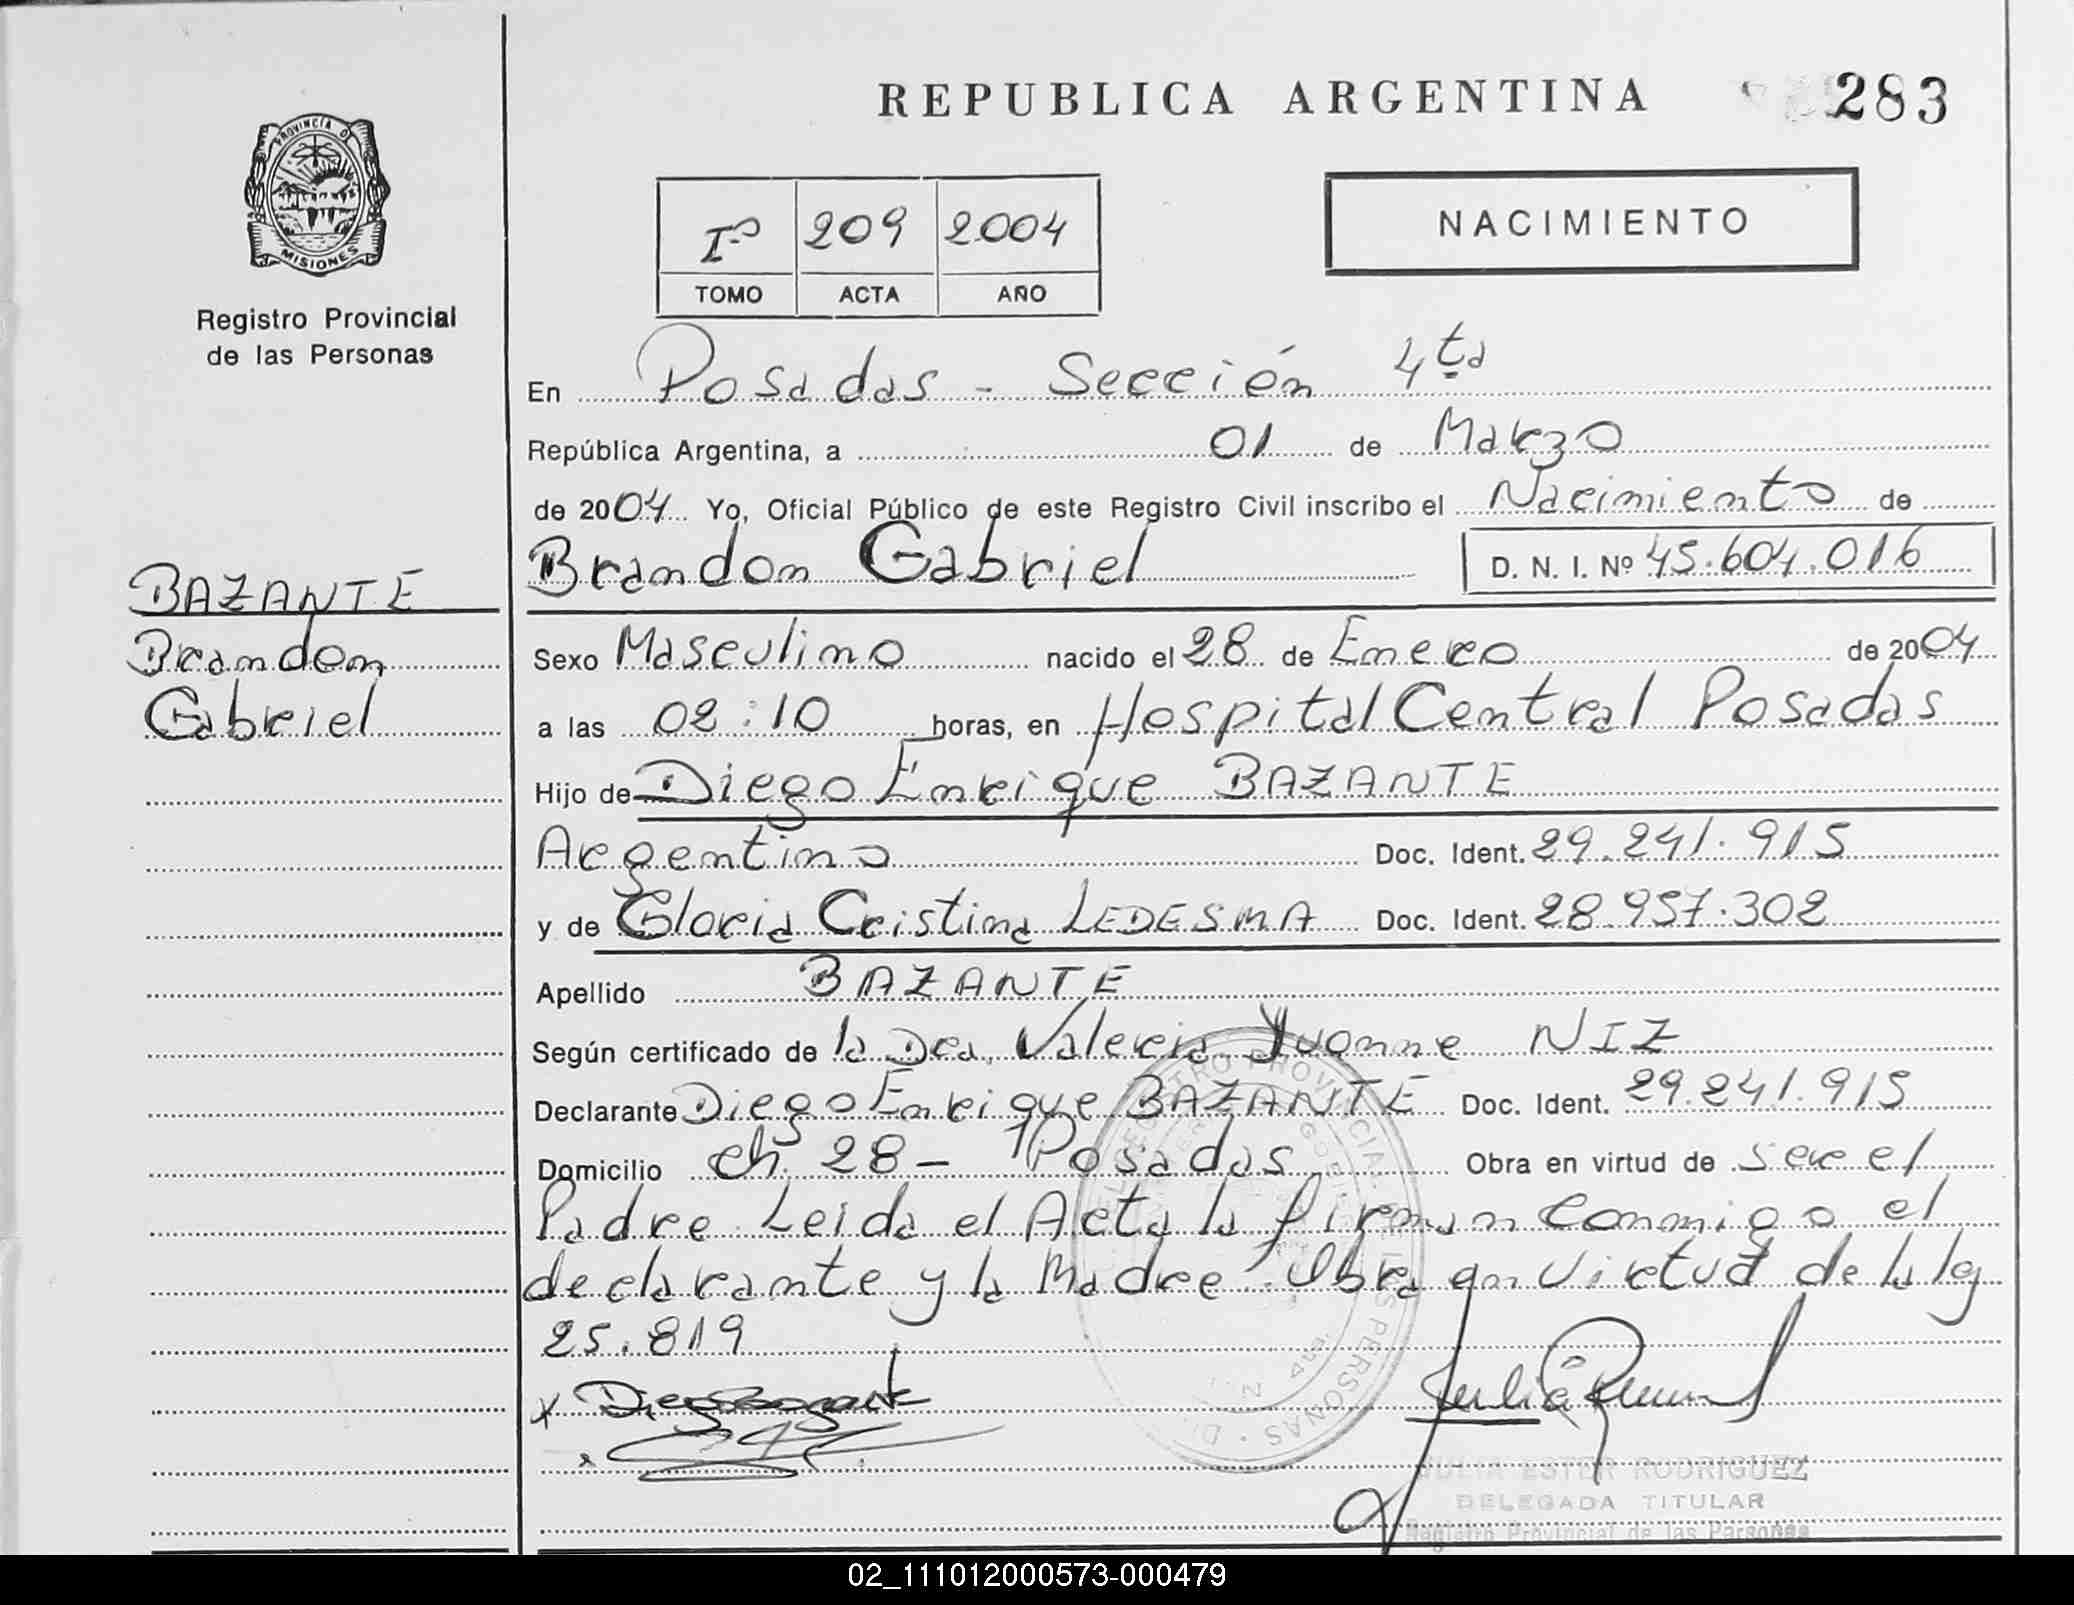 REPUBLICA ARGENTINA 283
PROVINCIA D
MISIONES
Registro Provincial
de las Personas
Iº 209 2004
TOMO ACTA AÑO
NACIMIENTO
En Posadas - Sección 4ta
República Argentina, a 01 de Marzo
de 2004 Yo, Oficial Público de este Registro Civil inscribo el Nacimiento de
Brandon Gabriel D. N. I. Nº 45.604.016
BAZANTE
Brandon
Gabriel
Sexo Masculino nacido el 28 de Enero de 2004
a las 02:10 horas, en Hospital Central Posadas
Hijo de Diego Enrique BAZANTE
Argentino Doc. Ident. 29.241.915
y de Gloria Cristina LEDESMA Doc. Ident. 28.957.302
Apellido BAZANTE
Según certificado de la Dra. Valeria Yvonne NIZ
Declarante Diego Enrique BAZANTE Doc. Ident. 29.241.915
Domicilio ch. 28 - Posadas Obra en virtud de ser el
Padre. Leida el Acta la firman conmigo el
declarante y la Madre. Obra en virtud de la ley
25.819
JULIA ESTER RODRIGUEZ
DELEGADA TITULAR
Registro Provincial de las Personas
02_111012000573-000479